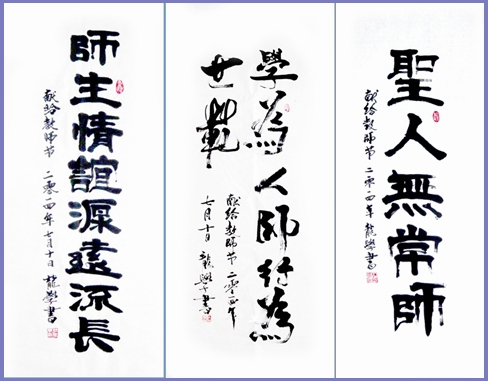 聖人無常師
献给教师节 二零一四年 龍 書
學為人師行為
世範
献给教师节 二零一四年
七月十日 龍 書
師生情誼源遠流長
献给教师节 二零一四年七月十日 龍 書